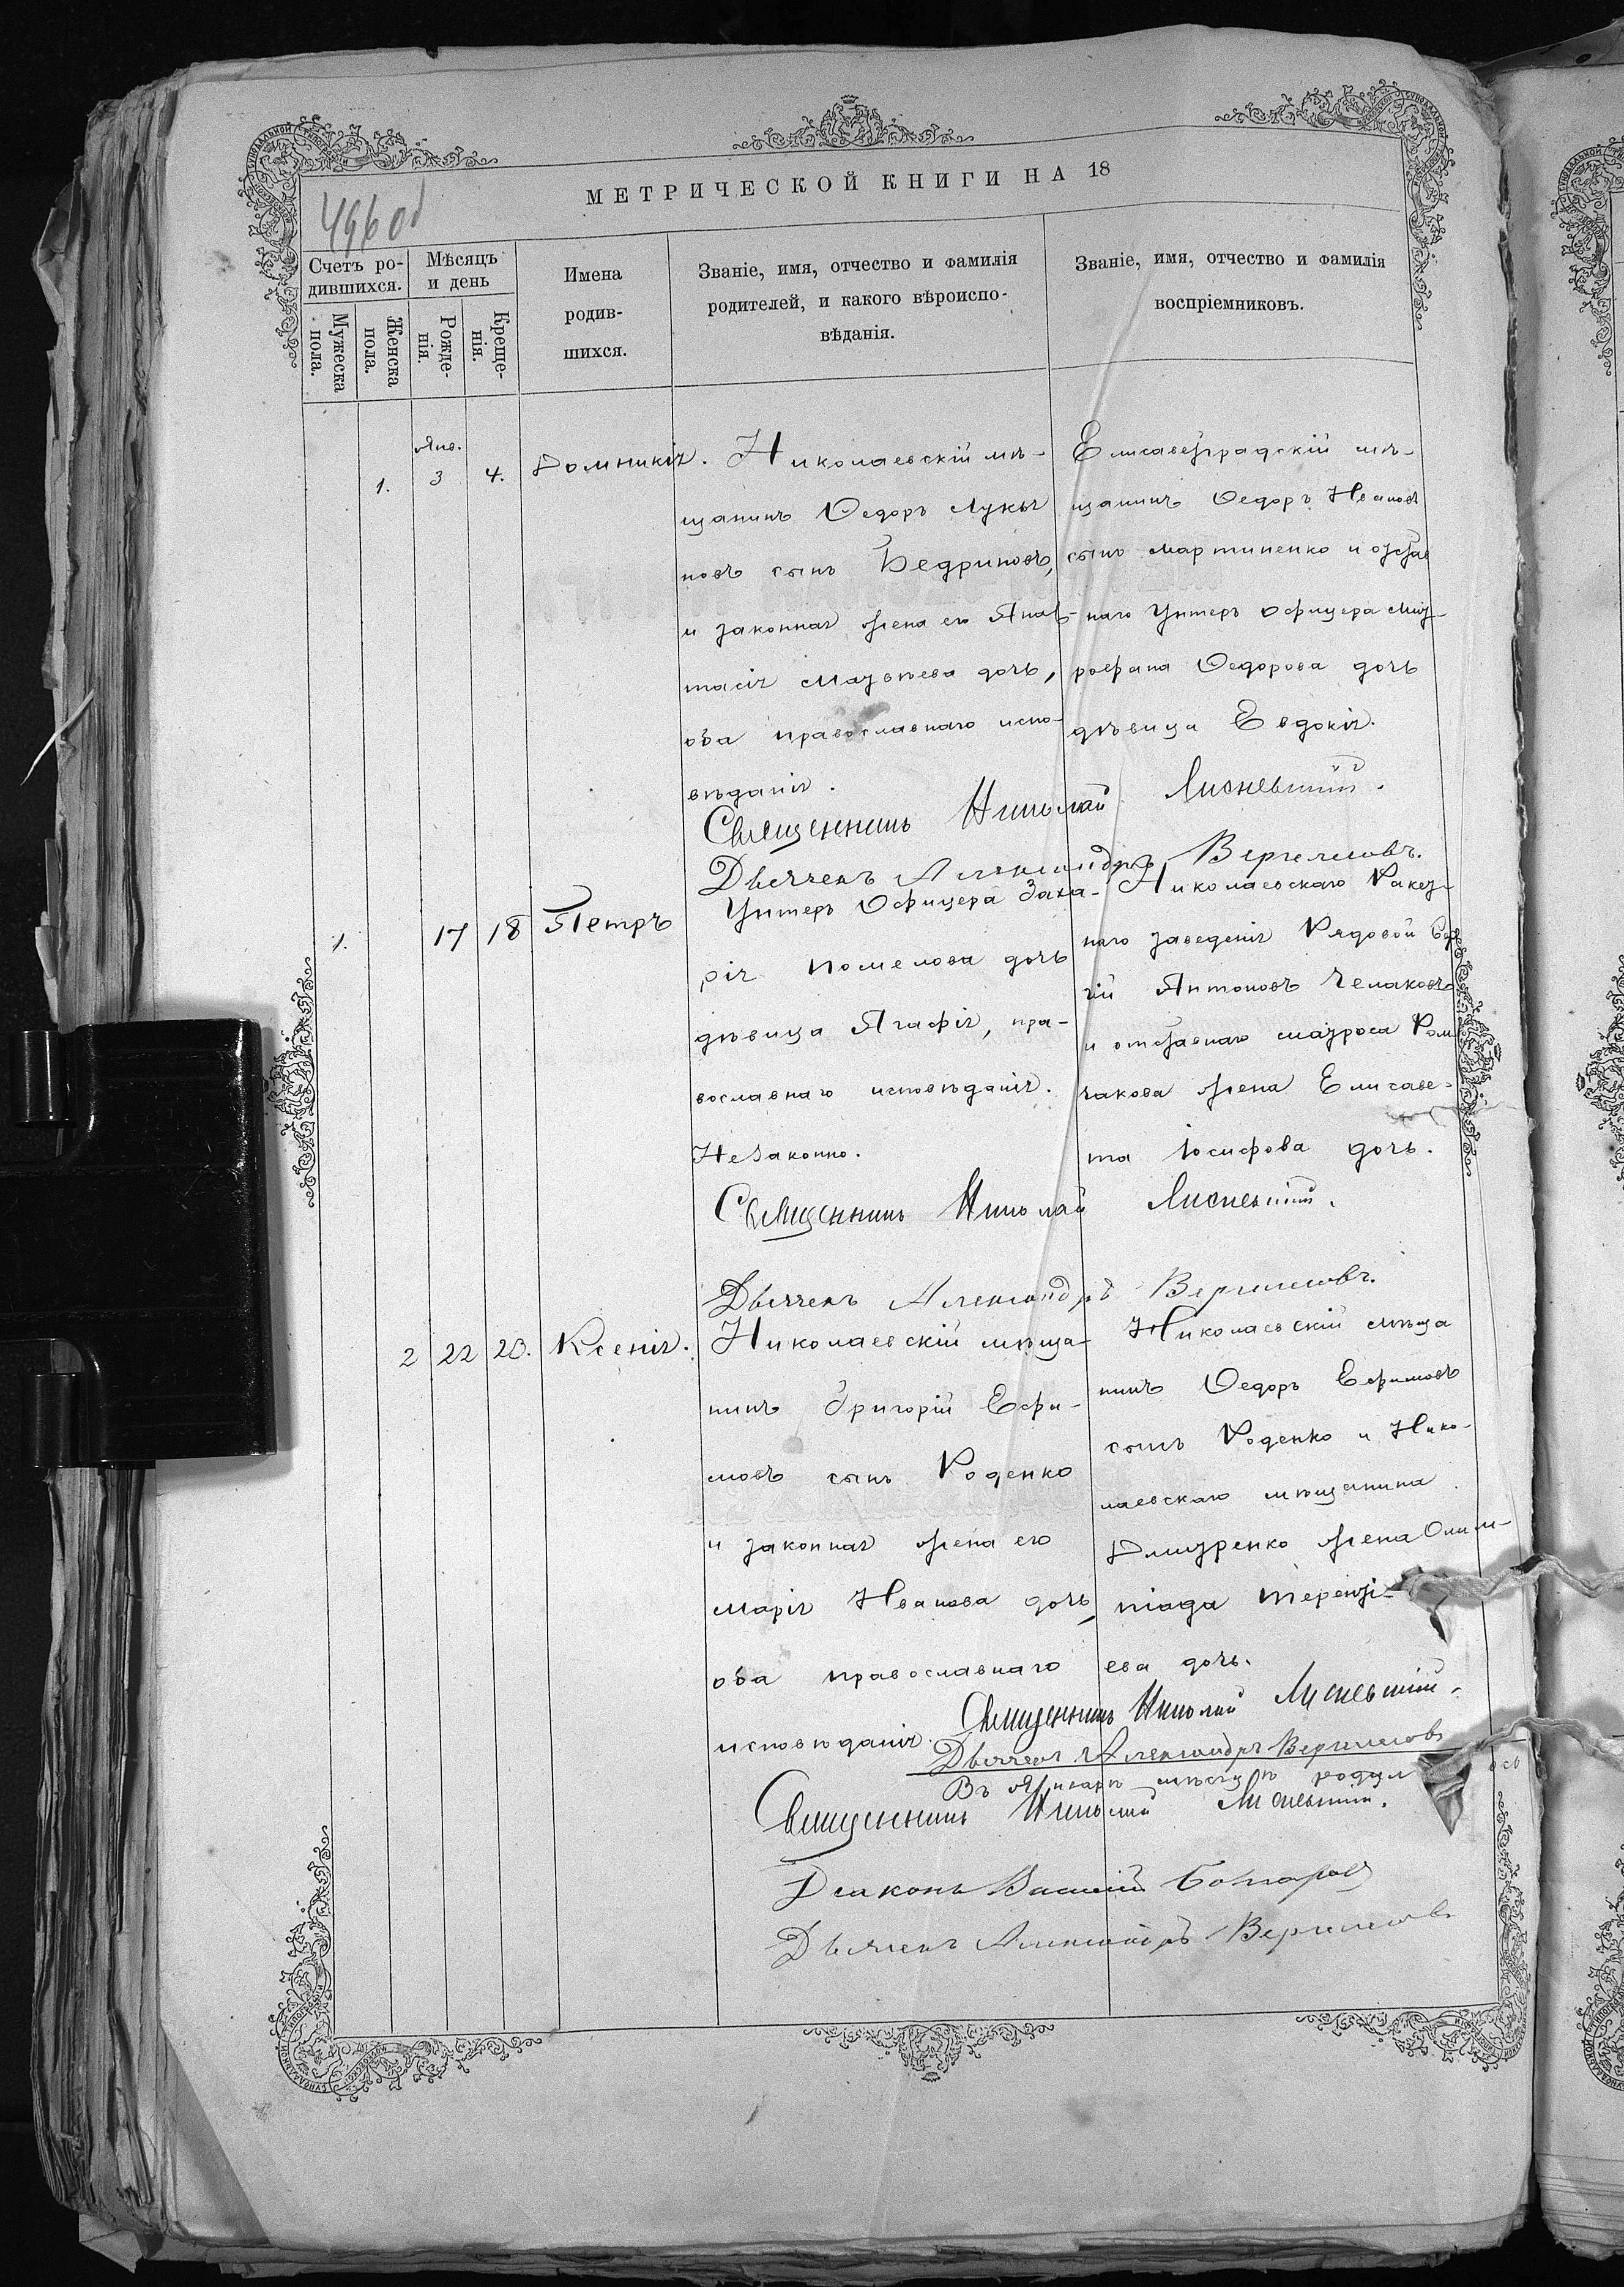 МЕТРИЧЕСКОЙ КНИГИ НА 18
496 об
Счетъ ро-
дившихся.
Мужеска
пола.
Женска
пола.
Мѣсяцъ
и день
Рожде-
нія.
Креще-
нія.
Имена
родив-
шихся.
Званіе, имя, отчество и фамилія
родителей, и какого вѣроиспо-
вѣданія.
Званіе, имя, отчество и фамилія
воспріемниковъ.
Янв.
1. 3 4. Домникія.
Николаевскій мѣ-
щанинъ Ѳедоръ Лукья
новъ сынъ Бедриновъ,
и законная жена его Анас-
тасія Матвѣева дочь,
оба православнаго испо-
вѣданія.
Елисаветградскій мѣ-
щанинъ Ѳедоръ Ивановъ
сынъ Мартиненко и отстав
наго Унтеръ Офицера Мит-
рофана Ѳедорова дочь
дѣвица Евдокія.
Священникъ Николай Лисневскій.
Дьячекъ Александръ
1. 17 18 Петръ
Унтеръ Офицера Заха-
рія Помелова дочь
дѣвица Агафія, пра-
вославнаго исповѣданія.
Незаконно.
Николаевскаго Ракет-
наго заведенія Рядовой
Антоновъ Чепаковъ
и отставнаго матроса
чакова жена Елисаве-
та Іосифова дочь.
Священникъ Николай Лисневскій.
Дьячекъ Александръ
2 22 23. Ксенія.
Николаевскій мѣща-
нинъ Григорій Ефи-
мовъ сынъ Роденко
и законная жена его
Марія Иванова дочь,
оба православнаго
исповѣданія.
Николаевскій мѣща
нинъ Ѳедоръ Ефимовъ
сынъ Роденко и Нико-
лаевскаго мѣщанина
Дмитренко жена Олим-
піада Терентi-
ева дочь.
Священникъ Николай Лисневскій.
Дьячекъ Александръ
Въ Январѣ мѣсяцѣ родил ось
Священникъ Николай Лисневскій.
Діаконъ Василій
Дьячекъ Александръ